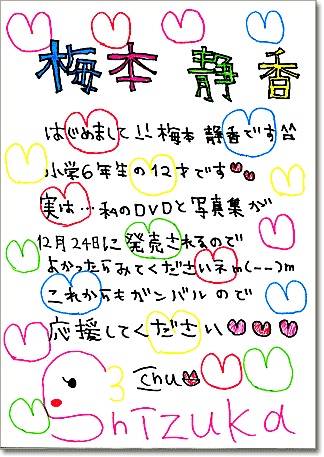 梅本 静香
はじめまして!! 梅本 静香です^^
小学6年生の12才です♥♥
実は…私のDVDと写真集が
12月24日に発売されるので
よかったらみてくださいネm(--)m
これからもガンバルので
応援してください♥♥♥
chu♥
Shizuka